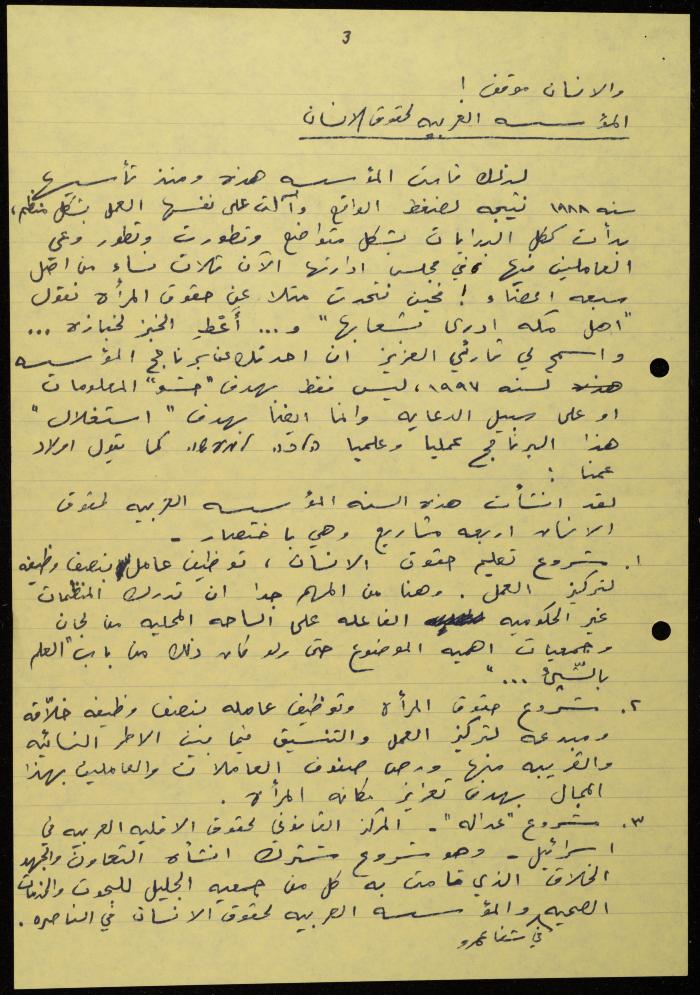 3
والانسان موقف !
المؤسسه العربيه لحقوق الانسان
لذلك قامت المؤسسه هذه ومنذ تأسيسها
سنه ١٩٨٨ نتيجه لضغط الواقع وآلت على نفسها العمل بشكل منظم،
بدأت ككل البدايات بشكل متواضع وتطورت وتطور وعي
العاملين فيها ، ففي مجلس ادارتها الآن ثلاث نساء من اصل
سبعه اعضاء ! نحن نتحدث مثلا عن حقوق المرأه نقول
"اهل مكه ادرى بشعابها" و... أَعْطِ الخبز لخبازه ...
واسمح لي قارئي العزيز ان احدثك عن برنامج المؤسسه
لسنه ١٩٩٧، ليس فقط بهدف "حشو" المعلومات
او على سبيل الدعايه وانما ايضا بهدف "استغلال"
هذا البرنامج عمليا وعلميا كما يقول اولاد
عمنا :
لقد انشأت هذه السنه المؤسسه العربيه لحقوق
الانسان اربعه مشاريع وهي باختصار -
١. مشروع تعليم حقوق الانسان ، توظيف عامل بنصف وظيفه
لتركيز العمل . وهنا من المهم جدا ان تدرك المنظمات
غير الحكوميه الفاعله على الساحه المحليه من لجان
وجمعيات اهمية الموضوع حتى ولو كان ذلك من باب "العلم
بالشيء ..."
٢. مشروع حقوق المرأه وتوظيف عامله بنصف وظيفه خلاّقه
ومبدعه لتركيز العمل والتنسيق فيما بين الاطر النسائيه
والقريبه منها ورص صفوف العاملات والعاملين بهذا
المجال بهدف تعزيز مكانه المرأه .
٣. مشروع "عداله" - المركز القانوني لحقوق الاقليه العربيه في
اسرائيل - وهو مشروع مشترك انشأه التعاون والجهد
الخلاق الذي قامت به كل من جمعيه الجليل للبحوث والخدمات
الصحيه والمؤسسه العربيه لحقوق الانسان في الناصره .
في شفاعمرو